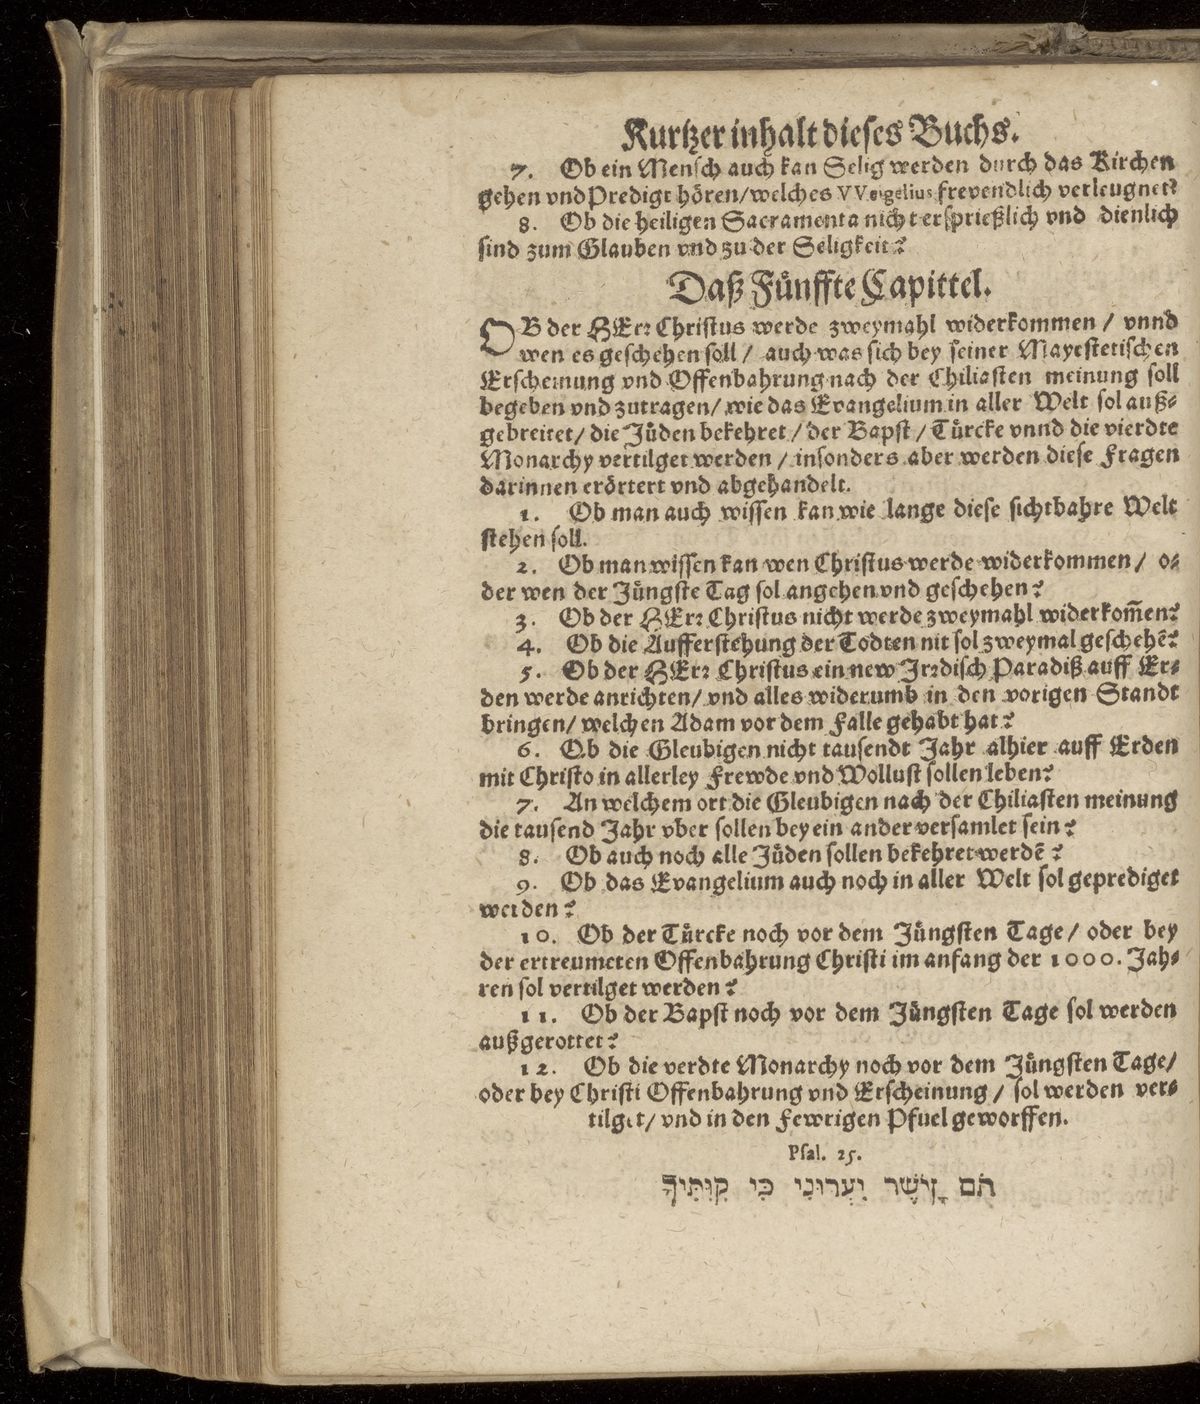 Kurtzer inhalt dieses Buchs.
7. Ob ein Mensch auch kan Selig werden durch das Kirchen
gehen vnd Predigt hören/welches VVeigelius frevendlich verleugnet?
8. Ob die heiligen Sacramenta nicht ersprießlich vnd dienlich
sind zum Glauben vnd zu der Seligkeit?
Daß Fünffte Capittel.
OB der HErr Christus werde zweymahl widerkommen / vnnd
wen es geschehen soll / auch was sich bey seiner Mayestetischen
Erscheinung vnd Offenbahrung nach der Chiliasten meinung soll
begeben vnd zutragen/ wie das Evangelium in aller Welt sol auß-
gebreitet/ die Jüden bekehret / der Bapst / Türcke vnnd die vierdte
Monarchy vertilget werden / insonders aber werden diese Fragen
darinnen erörtert vnd abgehandelt.
1. Ob man auch wissen kan wie lange diese sichtbahre Welt
stehen soll.
2. Ob man wissen kan wen Christus werde widerkommen / o-
der wen der Jüngste Tag sol angehen vnd geschehen?
3. Ob der HErr Christus nicht werde zweymahl widerkom̄en?
4. Ob die Aufferstehung der Todten nit sol zweymal geschehē?
5. Ob der HErr Christus ein new Irrdisch Paradiß auff Er-
den werde anrichten/ vnd alles widerumb in den vorigen Standt
bringen/ welchen Adam vor dem Falle gehabt hat?
6. Ob die Gleubigen nicht tausendt Jahr alhier auff Erden
mit Christo in allerley Frewde vnd Wollust sollen leben?
7. An welchem ort die Gleubigen nach der Chiliasten meinung
die tausend Jahr vber sollen bey ein ander versamlet sein?
8. Ob auch noch alle Jüden sollen bekehret werdē?
9. Ob das Evangelium auch noch in aller Welt sol geprediget
werden?
10. Ob der Türcke noch vor dem Jüngsten Tage / oder bey
der ertreumeten Offenbahrung Christi im anfang der 1000. Jah-
ren sol vertilget werden?
11. Ob der Bapst noch vor dem Jüngsten Tage sol werden
außgerottet?
12. Ob die verdte Monarchy noch vor dem Jüngsten Tage/
oder bey Christi Offenbahrung vnd Erscheinung / sol werden ver-
tilget/ vnd in den Fewrigen Pfuel geworffen.
Psal. 25.
תֹּם וָיֹשֶׁר יִצְּרוּנִי כִּי קִוִּתִיךָ